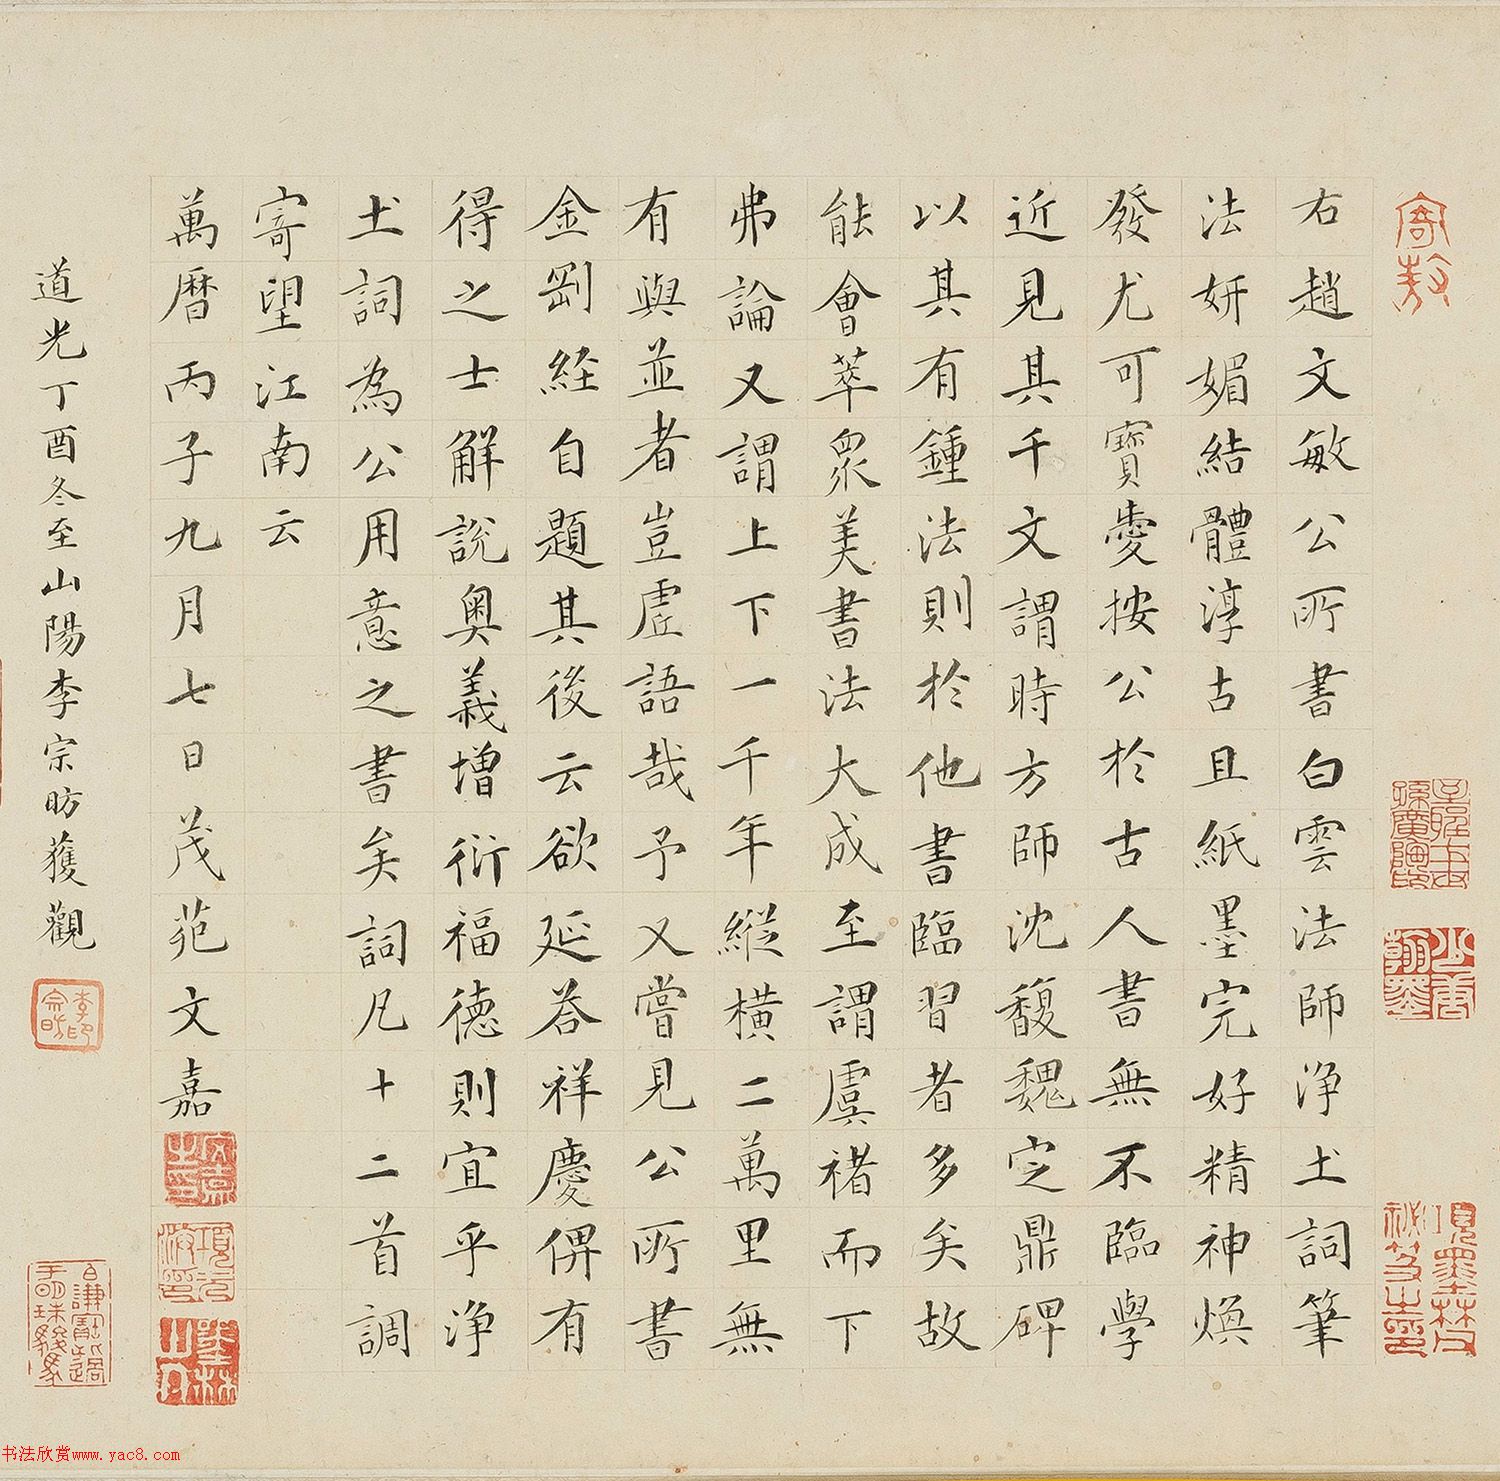 右趙文敏公所書白雲法師淨土詞筆
法妍媚結體淳古且紙墨完好精神煥
發尤可寶愛按公於古人書無不臨學
近見其千文謂時方師沈馥魏定鼎碑
以其有鍾法則於他書臨習者多矣故
能會萃眾美書法大成至謂虞褚而下
弗論又謂上下一千年縱橫二萬里無
有與並者豈虛語哉予又嘗見公所書
金剛経自題其後云欲延荅祥慶俾有
得之士解說奥義增衍福德則宜乎淨
土詞為公用意之書矣詞凡十二首調
寄望江南云
萬曆丙子九月七日茂苑文嘉
道光丁酉冬至山陽李宗昉獲觀
书法欣赏www.yac8.com